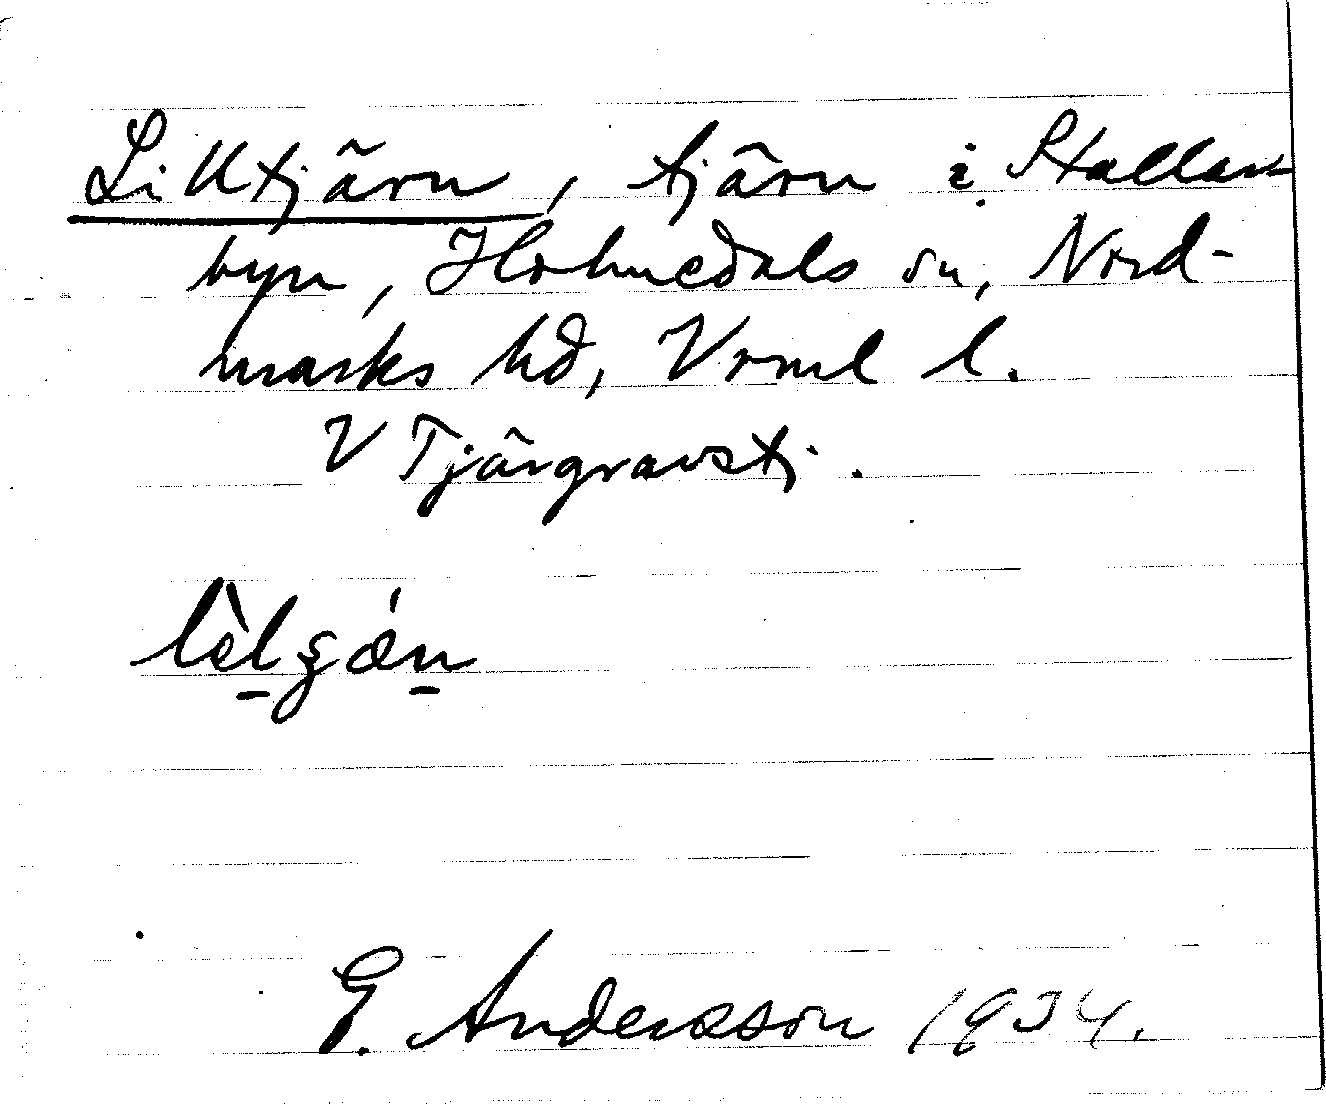 Lilltjärn, tjärn i Stallar-
byn, Holmedals sn, Nord-
marks hd, Vrml l.
V Tjärgravstj.
lèlʂǽn
G. Andersson 1934.